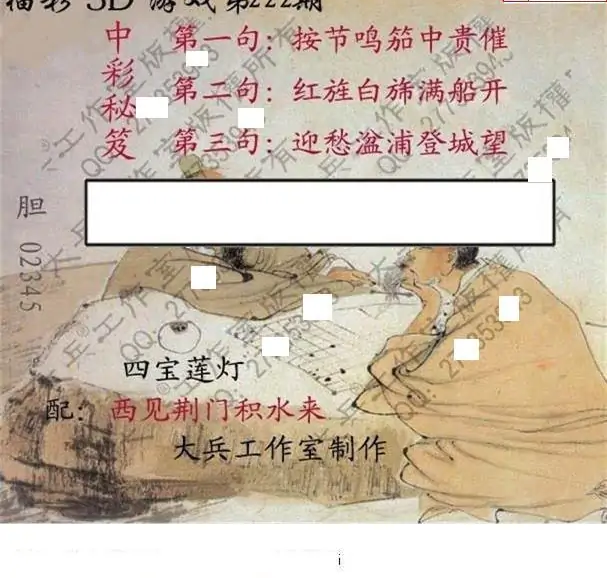 福彩 3D 游戏第222期
中彩秘笈
第一句：按节鸣笳中贵催
第二句：红旌白旆满船开
第三句：迎愁湓浦登城望
胆 02345
四宝莲灯
配：西见荆门积水来
大兵工作室制作